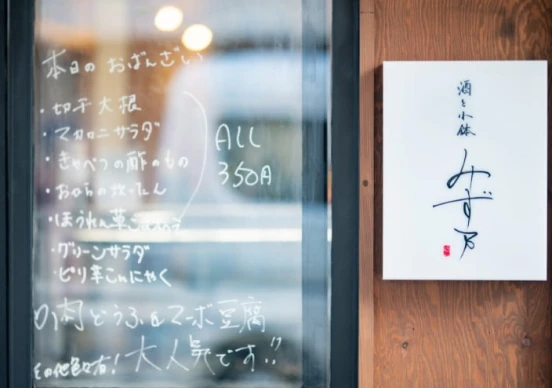 本日の おばんざい
・切干大根
・マカロニサラダ
・きゃべつの酢のもの
・おからの炊いたん
・ほうれん草ごま
・グリーンサラダ
・ピリ辛こんにゃく
ALL
350円
肉どうふ&マーボ豆腐
その他色々有!大人気です!!
酒と小鉢
みず乃